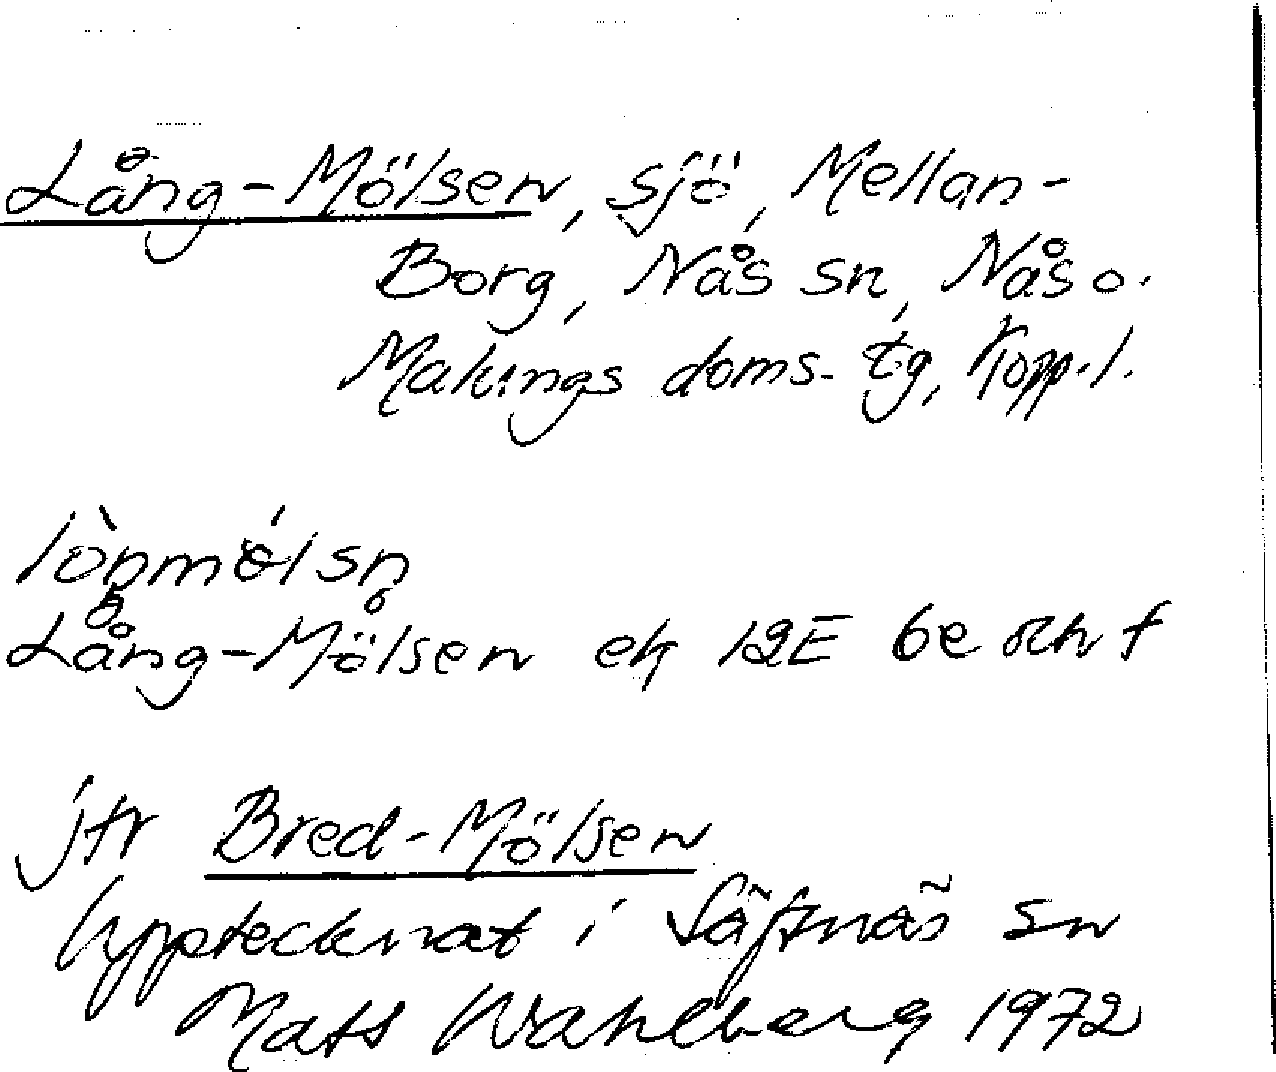 Lång-Mölsen, sjö, Mellan-
Borg, Nås sn, Nås o.
Malungs doms. tg, Kopp.l.
Lång-Mölsen ek 12E 6e och f
jfr Bred-Mölsen
Upptecknat i Säfsnäs sn
Mats Wahlberg 1972